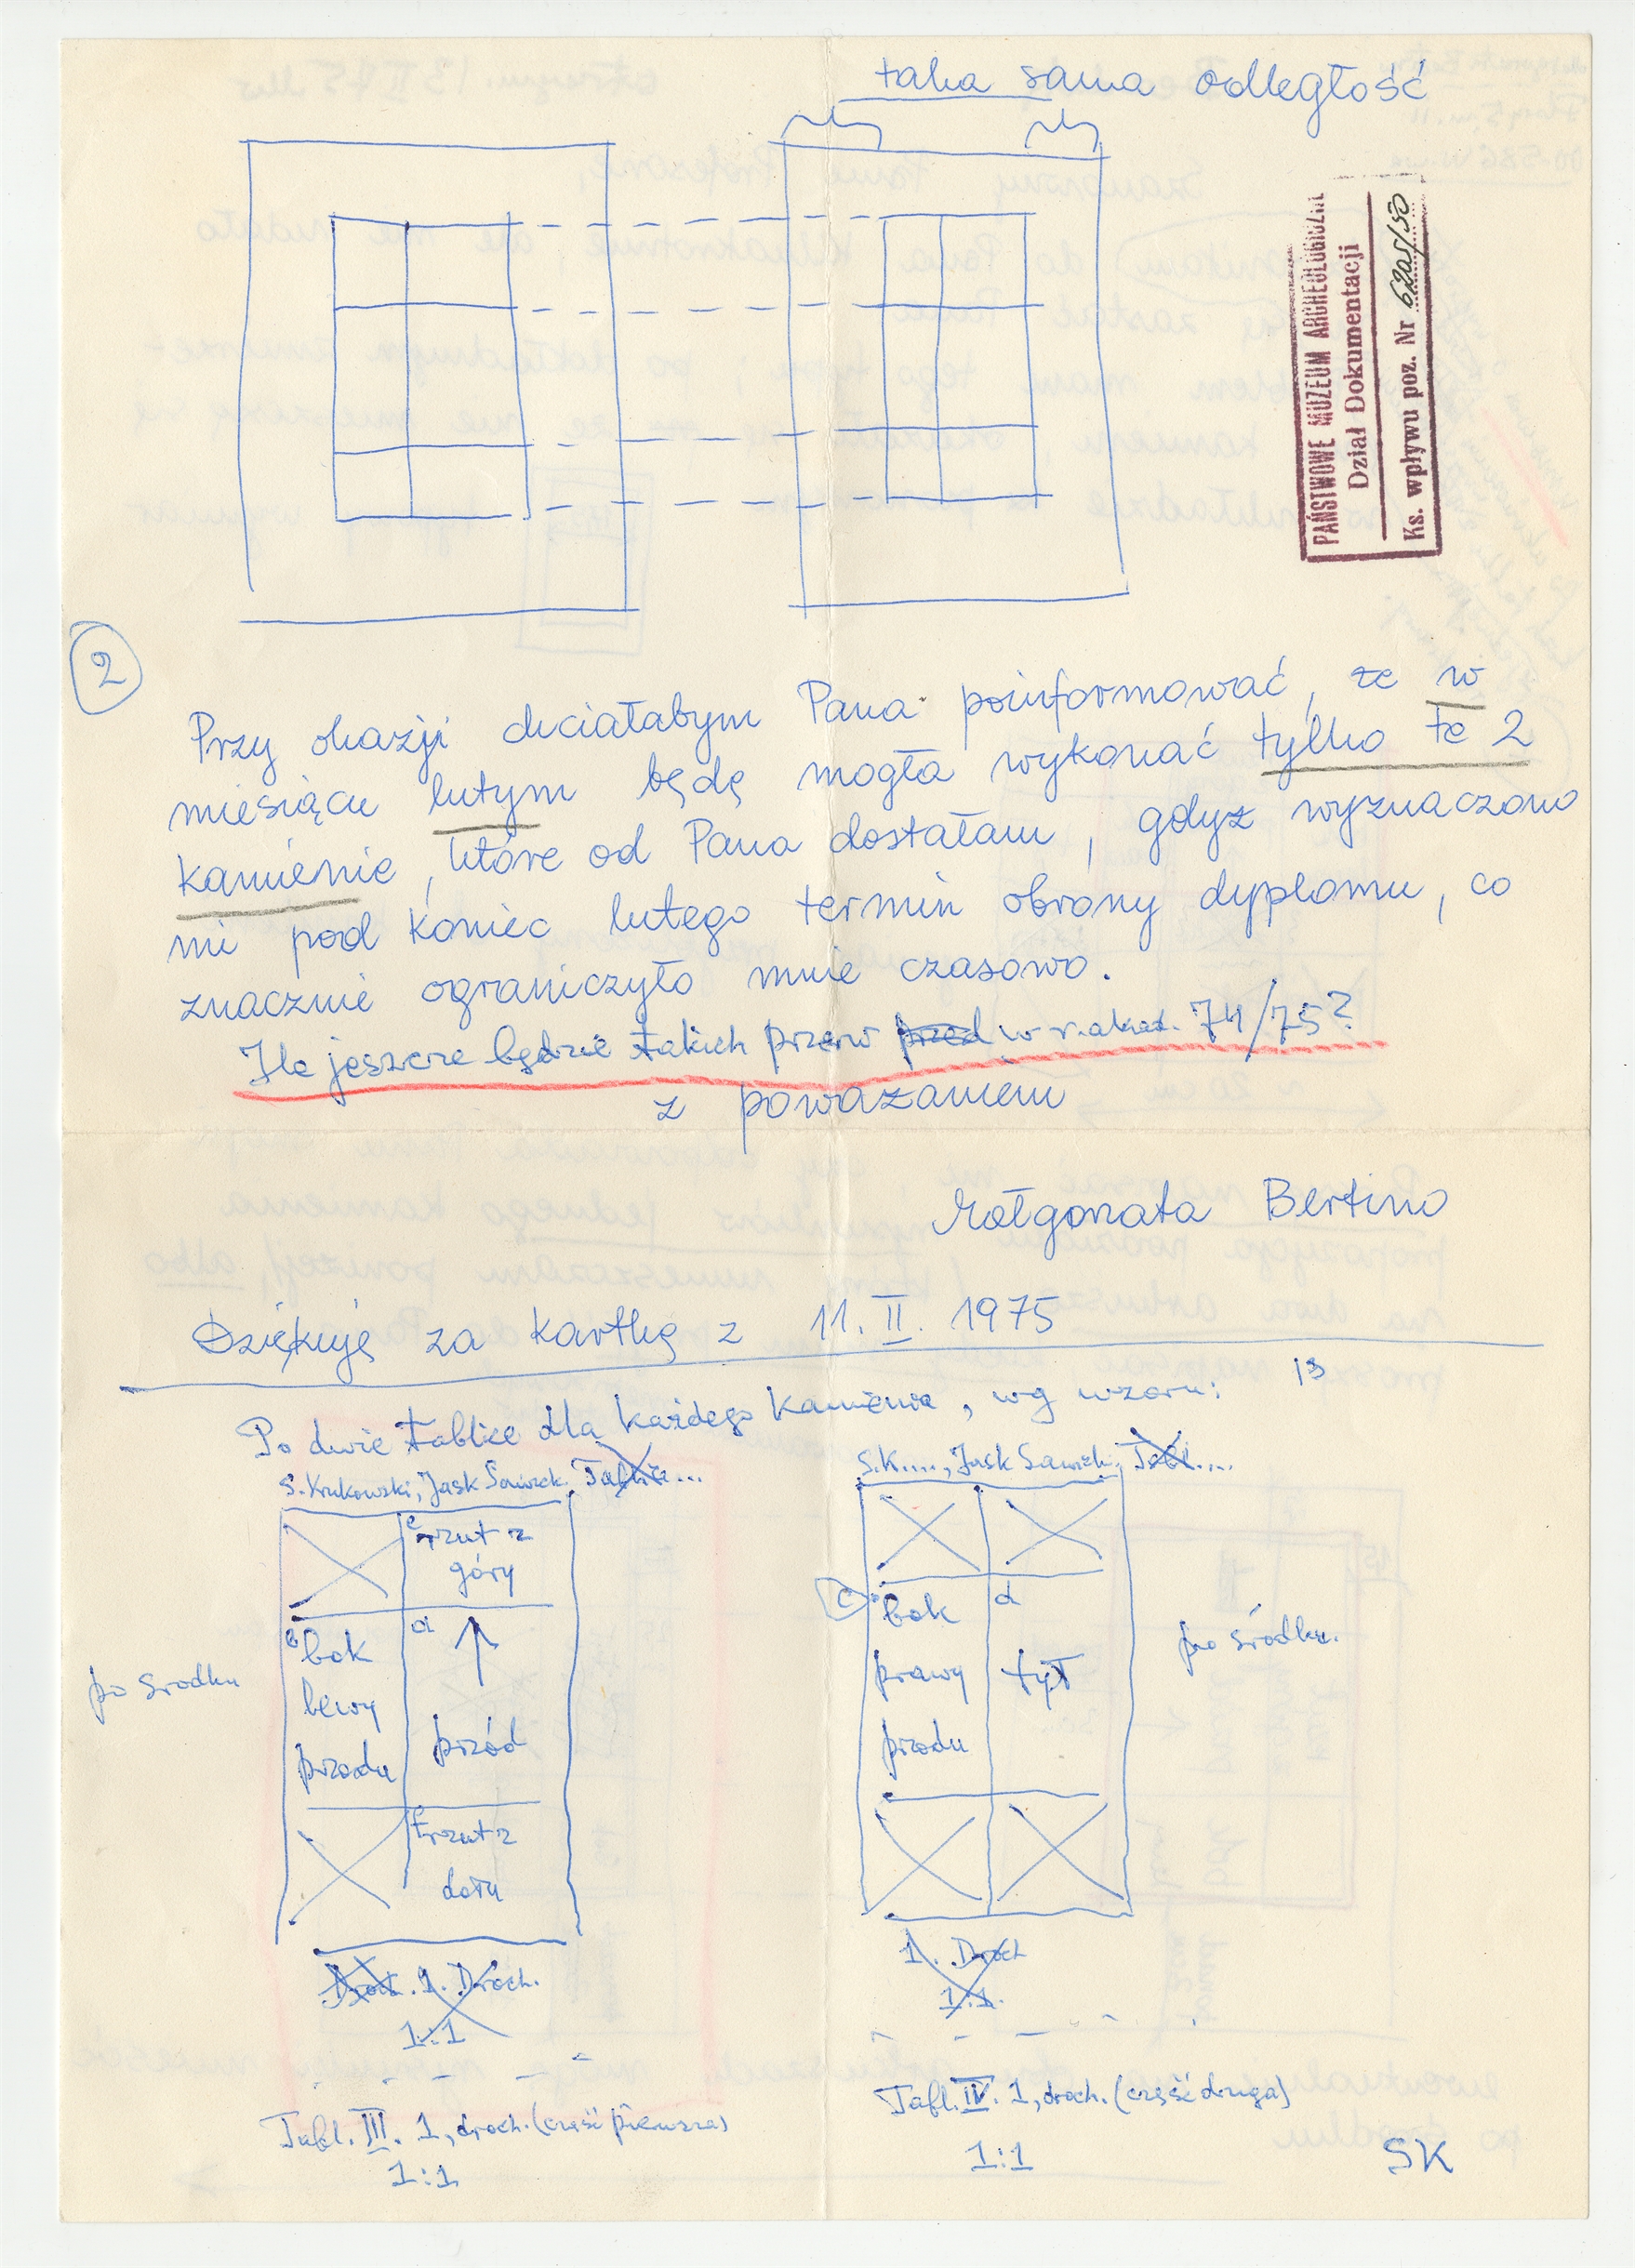 taka sama odległość
PAŃSTWOWE MUZEUM ARCHEOLOGICZNE
Dział Dokumentacji
Ks. wpływu poz. Nr
2
Przy okazji chciałabym Pana poinformować, że w
miesiącu lutym będę mogła wykonać tylko te 2
kamienie, które od Pana dostałam, gdyż wyznaczono
mi pod koniec lutego termin obrony dyplomu, co
znacznie ograniczyło mnie czasowo.
Ile jeszcze będzie takich przerw przed w r. akad. 74/75?
z poważaniem
Małgorzata Bertino
Dziękuję za kartkę z 11. II. 1975
13
Po dwie tablice dla każdego kamienia, wg wzoru:
S. Krukowski, Jask Sawick. Tablica...
S.K...., Jask Sawick. Tabl....
e rzut z
góry
b bok
lewy
przodu
a
przód
f rzut z
dołu
po środku
c bok
prawy
przodu
d
tył
po środku.
Droch. 1. Droch.
1:1
1. Droch
1:1.
Tabl. III. 1, droch. (część pierwsza)
1:1
Tabl. IV. 1, droch. (część druga)
1:1
SK